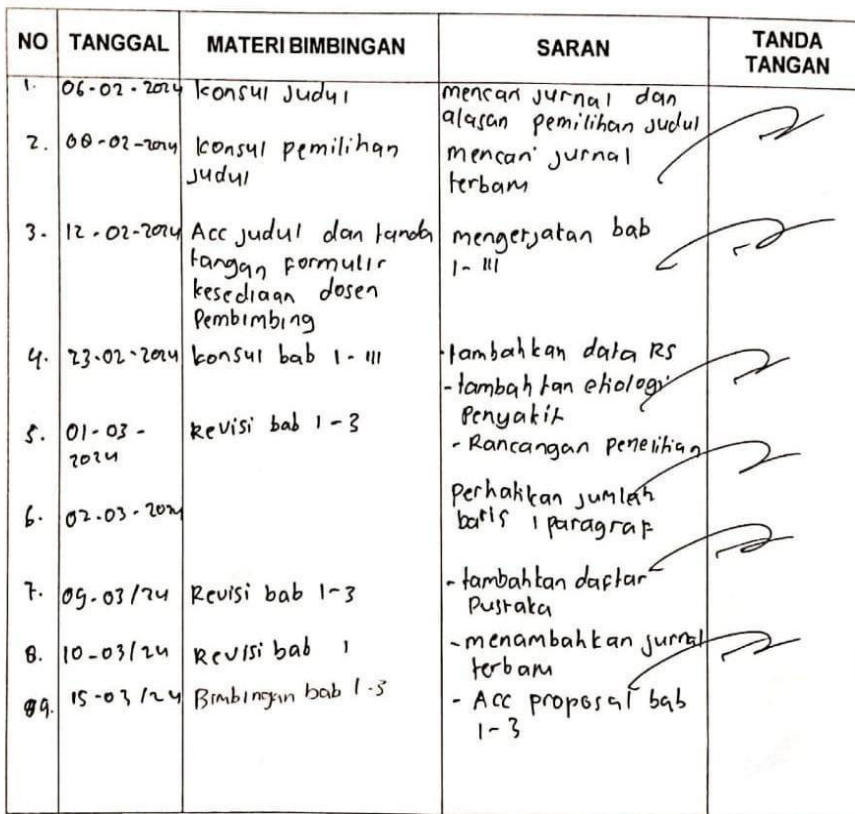 NO TANGGAL MATERI BIMBINGAN SARAN TANDA TANGAN
1. 06-02-2024 Konsul Judul mencari Jurnal dan
alasan pemilihan Judul
2. 08-02-2024 Konsul pemilihan mencari Jurnal
Judul terbaru
3. 12-02-2024 Acc Judul dan tanda mengerjakan bab
tangan formulir 1-III
kesediaan dosen
Pembimbing
4. 23-02-2024 konsul bab 1-III -tambahkan data RS
-tambahkan etiologi
Penyakit
5. 01-03- Revisi bab 1-3 - Rancangan penelitian
2024
Perhatikan jumlah
6. 02-03-2024 baris 1 paragraf
7. 09-03/24 Revisi bab 1-3 - tambahkan daftar
Pustaka
8. 10-03/24 Revisi bab 1 -menambahkan jurnal
terbaru
9. 15-03/24 Bimbingan bab 1-3 - Acc proposal bab
1-3